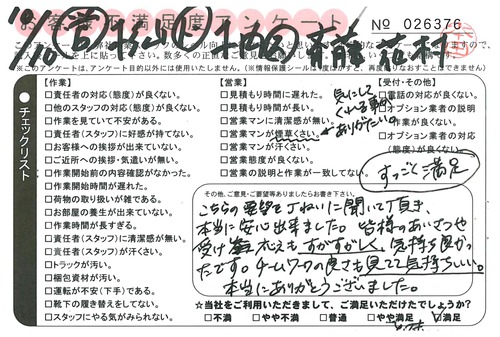 お客様不満足度アンケート
No 026376
※このアンケートは、アンケート目的以外には使用いたしません。
チェックリスト
【作業】
□責任者の対応(態度)が良くない。
□他のスタッフの対応(態度)が良くない。
□作業を見ていて不安がある。
□責任者(スタッフ)に好感が持てない。
□お客様への挨拶が出来ていない。
□ご近所への挨拶・気遣いが無い。
□作業開始前の内容確認がなかった。
□作業開始時間が遅れた。
□荷物の取り扱いが雑である。
□お部屋の養生が出来ていない。
□作業時間が長すぎる。
□責任者(スタッフ)に清潔感が無い。
□責任者(スタッフ)が汗くさい。
□トラックが汚い。
□梱包資材が汚い。
□運転が不安(下手)である。
□靴下の履き替えをしてない。
□スタッフにやる気がみられない。
【営業】
□見積もり時間に遅れた。
□見積もり時間が長い。
□営業マンに清潔感が無い。
□営業マンが煙草くさい。
□営業マンが汗くさい。
□営業態度が良くない。
□営業の説明と作業が一致してない。
気にして
くれる事が
ありがたいの
【受付・その他】
□電話の対応が良くない。
□オプション業者の説明
作業が良くない。
□オプション業者の対応
(態度)が良くない。
すっごく満足
その他、ご意見・ご要望等ありましたらお書き下さい。
こちらの要望をていねいに聞いて頂き、
本当に安心出来ました。皆様のあいさつや
受け答えもすがすがしく、気持ち良かっ
たです。チームワークの良さも見てて気持ちいい。
本当にありがとうございました。
☆当社をご利用いただきまして、ご満足いただけたでしょうか?
□不満 □やや不満 □普通 □やや満足 ☑満足